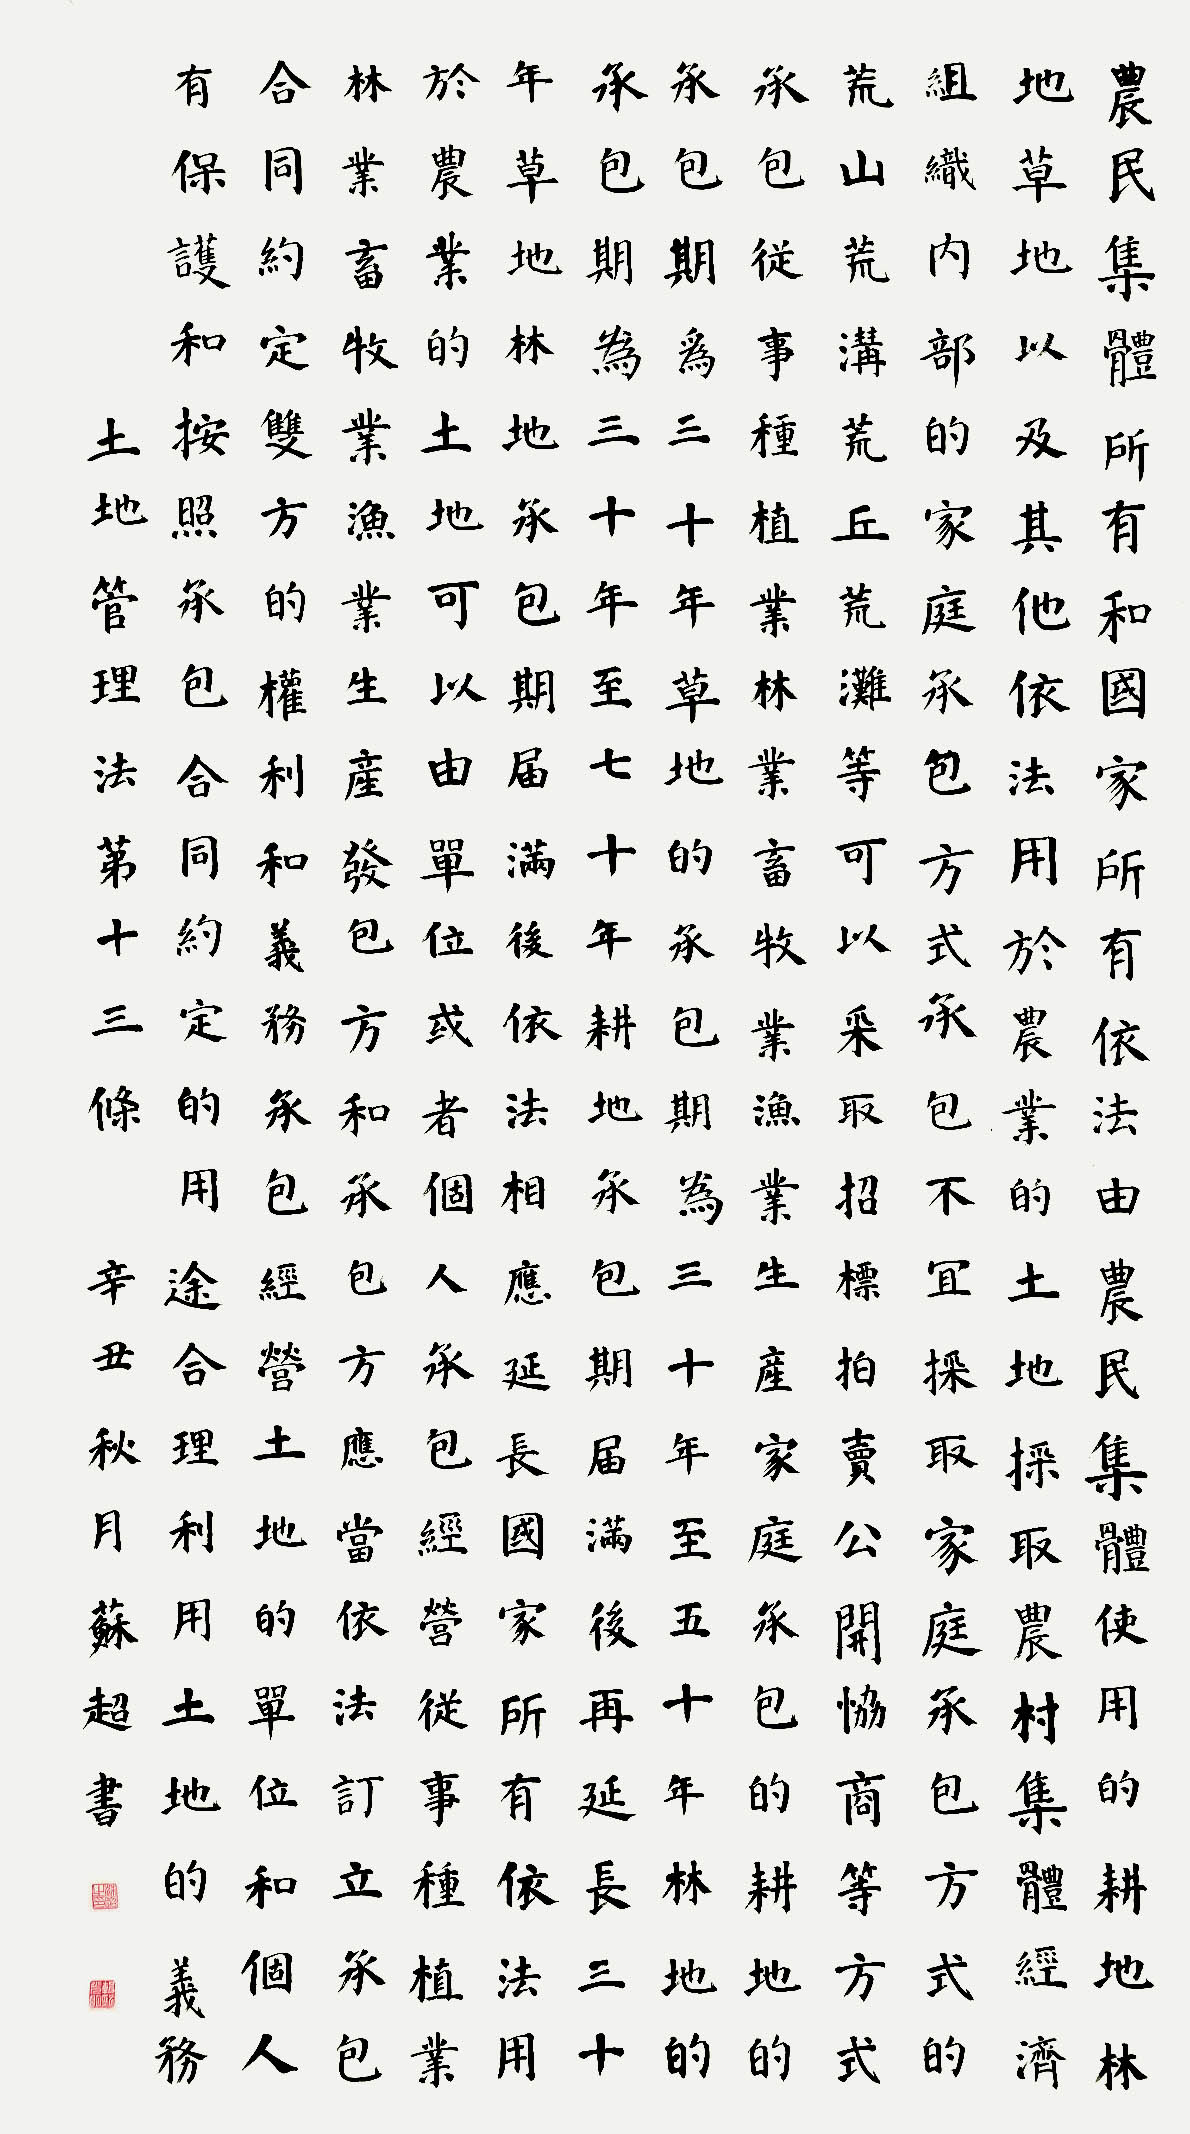 農民集體所有和國家所有依法由農民集體使用的耕地林
地草地以及其他依法用於農業的土地採取農村集體經濟
組織内部的家庭承包方式承包不宜採取家庭承包方式的
荒山荒溝荒丘荒灘等可以采取招標拍賣公開協商等方式
承包從事種植業林業畜牧業漁業生產家庭承包的耕地的
承包期爲三十年草地的承包期為三十年至五十年林地的
承包期為三十年至七十年耕地承包期届滿後再延長三十
年草地林地承包期届滿後依法相應延長國家所有依法用
於農業的土地可以由單位或者個人承包經營從事種植業
林業畜牧業漁業生產發包方和承包方應當依法訂立承包
合同約定雙方的權利和義務承包經營土地的單位和個人
有保護和按照承包合同約定的用途合理利用土地的義務
土地管理法第十三條 辛丑秋月蘇超書